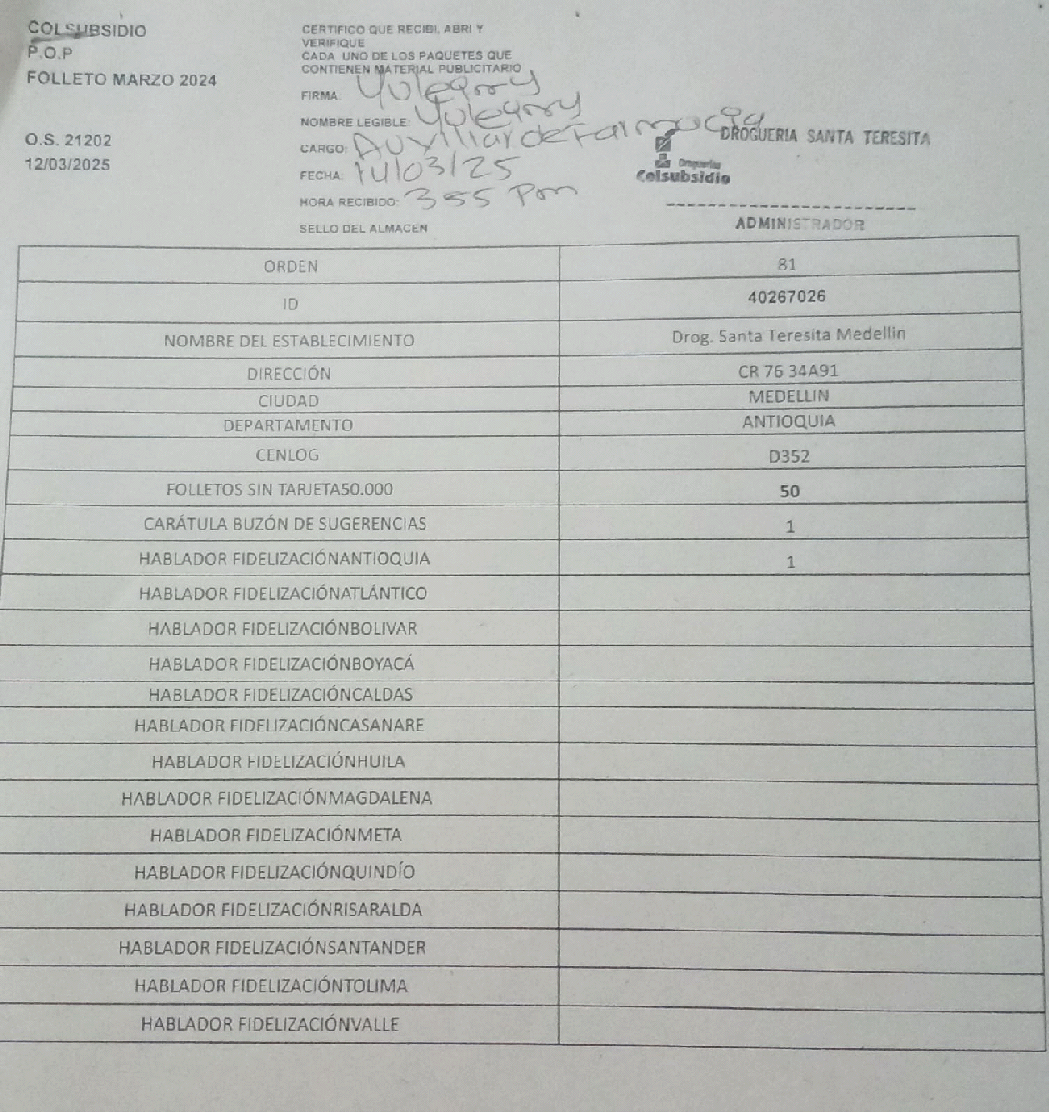 COLSUBSIDIO
P.O.P
FOLLETO MARZO 2024
O.S. 21202
12/03/2025
CERTIFICO QUE RECIBI, ABRI Y
VERIFIQUE
CADA UNO DE LOS PAQUETES QUE
CONTIENEN MATERIAL PUBLICITARIO
FIRMA: Yulegrry
NOMBRE LEGIBLE: Yulegrry
CARGO: Auxiliar de Farmacia
FECHA: 14/03/25
HORA RECIBIDO: 355 Pm
SELLO DEL ALMACEN
DROGUERIA SANTA TERESITA
Droguerías
Colsubsidio
ADMINISTRADOR
ORDEN 81
ID 40267026
NOMBRE DEL ESTABLECIMIENTO Drog. Santa Teresita Medellin
DIRECCIÓN CR 76 34A91
CIUDAD MEDELLIN
DEPARTAMENTO ANTIOQUIA
CENLOG D352
FOLLETOS SIN TARJETA50.000 50
CARÁTULA BUZÓN DE SUGERENCIAS 1
HABLADOR FIDELIZACIÓNANTIOQUIA 1
HABLADOR FIDELIZACIÓNATLÁNTICO
HABLADOR FIDELIZACIÓNBOLIVAR
HABLADOR FIDELIZACIÓNBOYACÁ
HABLADOR FIDELIZACIÓNCALDAS
HABLADOR FIDELIZACIÓNCASANARE
HABLADOR FIDELIZACIÓNHUILA
HABLADOR FIDELIZACIÓNMAGDALENA
HABLADOR FIDELIZACIÓNMETA
HABLADOR FIDELIZACIÓNQUINDÍO
HABLADOR FIDELIZACIÓNRISARALDA
HABLADOR FIDELIZACIÓNSANTANDER
HABLADOR FIDELIZACIÓNTOLIMA
HABLADOR FIDELIZACIÓNVALLE